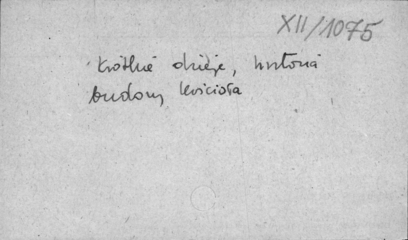 XII/1075
krótkie dzieje, historia
budowy kościoła